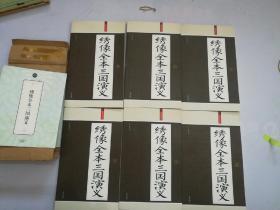 绣像全本三国演义
绣像全本三国演义
绣像全本三国演义
绣像全本三国演义
绣像全本三国演义
绣像全本三国演义
绣像全本三国演义